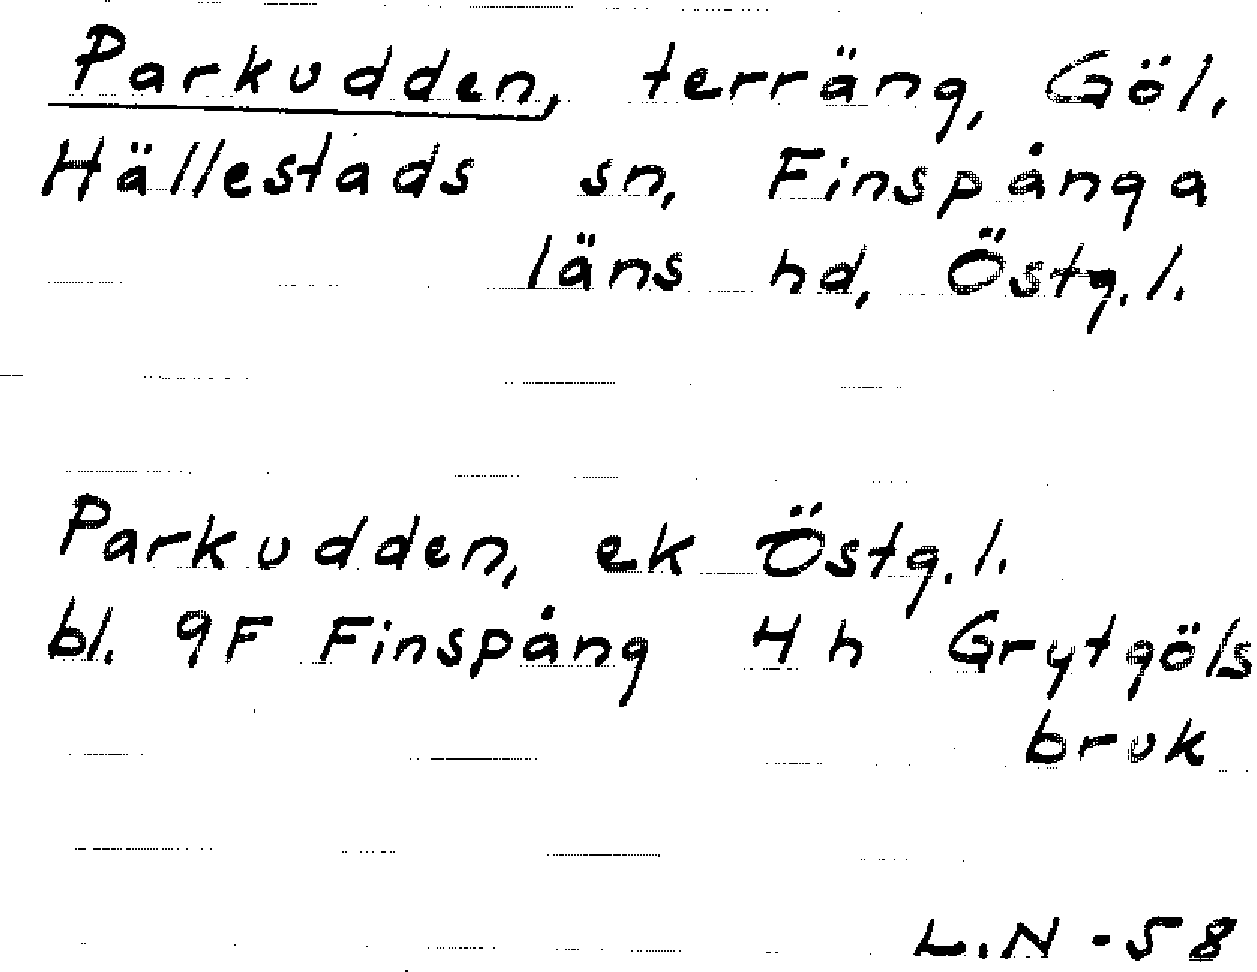 Parkudden, terräng, Göl,
Hällestads sn, Finspånga
läns hd, Östg.l.
Parkudden, ek Östg.l.
bl. 9F Finspång 4h Grytgöls
bruk
L.N -58